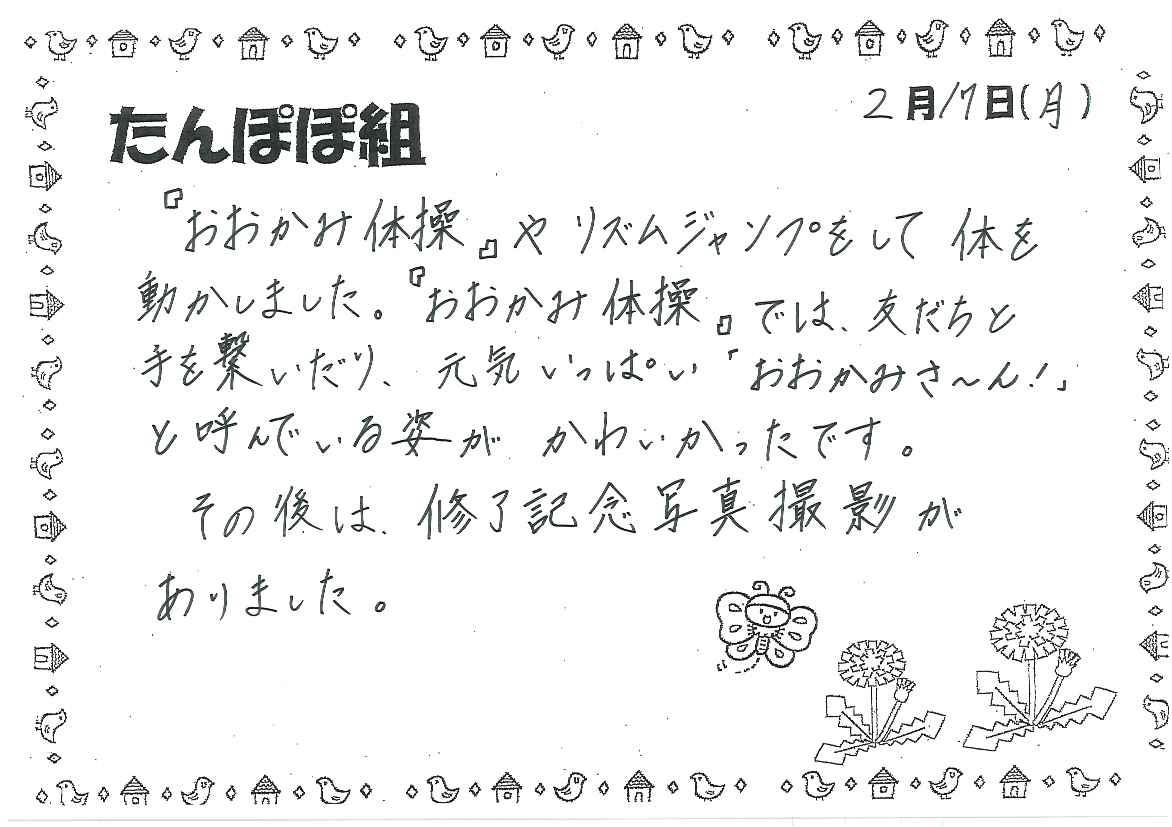 2月17日(月)
たんぽぽ組
『おおかみ体操』や リズムジャンプをして 体を
動かしました。『おおかみ体操』では、友だちと
手を繋いだり、元気いっぱい「おおかみさ～ん!」
と呼んでいる姿が かわいかったです。
その後は、修了記念写真撮影が
ありました。